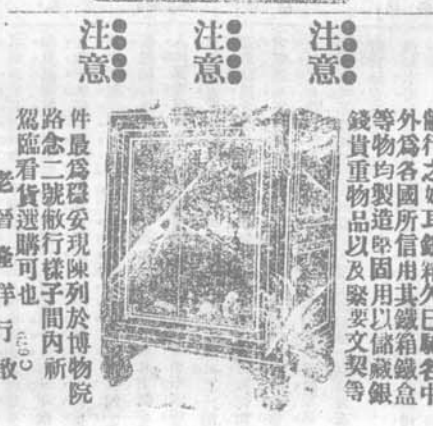 注意
注意
注意
行之耳鐵箱久已馳名中
外爲各國所信用其鐵箱鐵盒
等物均製造堅固用以儲藏銀
錢貴重物品以及緊要文契等
件最爲穩妥現陳列於博物院
路念二號敝行樣子間內祈
駕臨看貨選購可也
老晉隆洋行啟